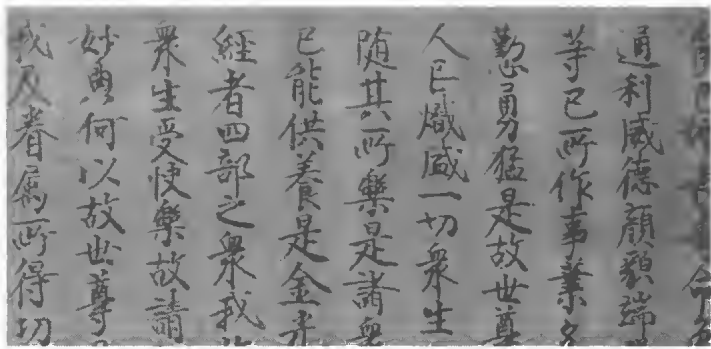 通利威德顏貌端
等已所作事業
懃勇猛是故世尊
人已熾盛一切衆生
随其所樂是諸衆
已能供養是金光
經者四部之衆我
衆生受快樂故請
妙典何以故世尊
我及眷属所得切